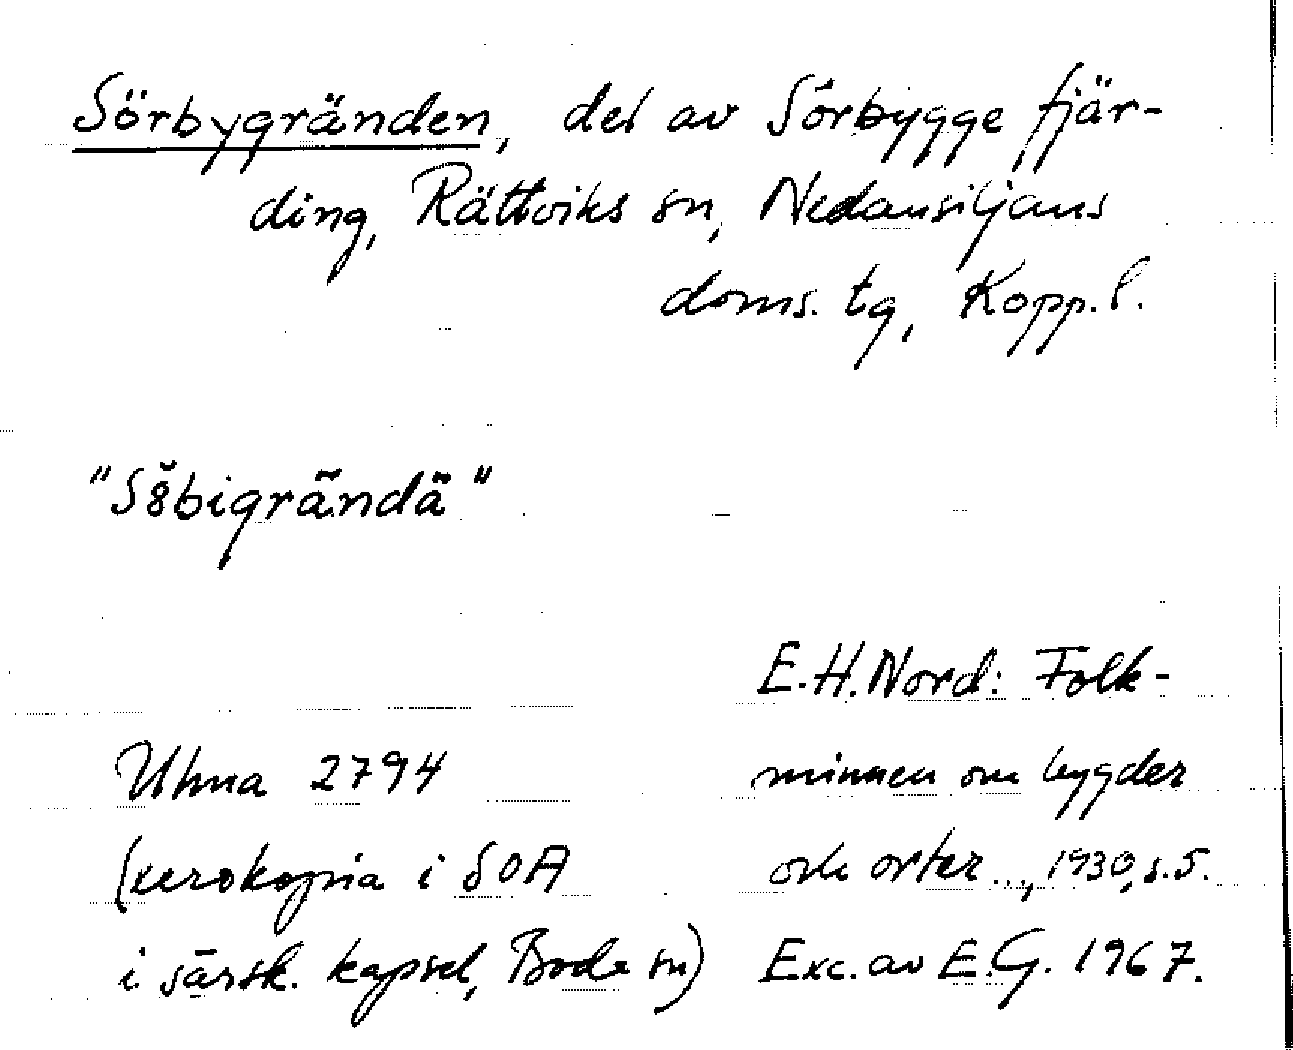 Sörbygränden, del av Sörbygge fjär-
ding, Rättviks sn, Nedansiljans
doms. tg, Kopp. l.
"Söbigrändä"
E.H. Nord: Folk-
minnen om bygder
och orter..., 1930, s.5.
Exc. av E.G. 1967.
Uhma 2794
(xerokopia i SOA
i särsk. kapsel, Boda sn)